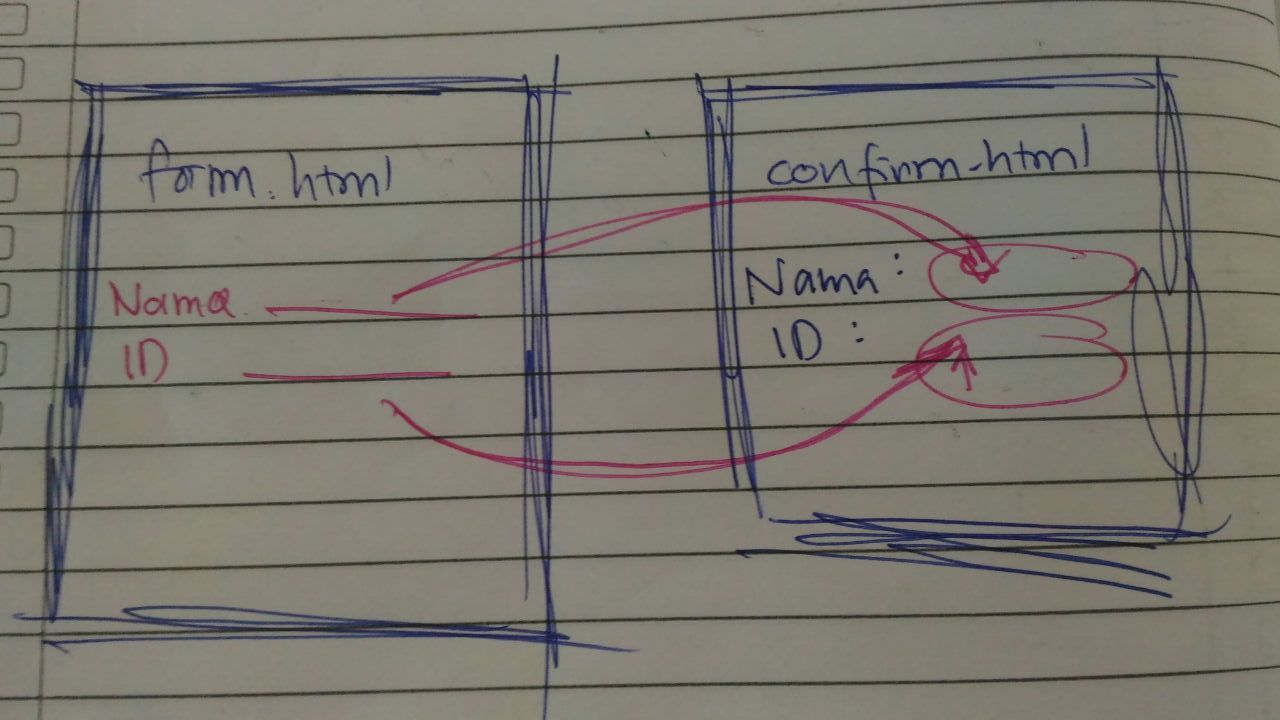 form.html
Nama
ID
confirm.html
Nama :
ID :